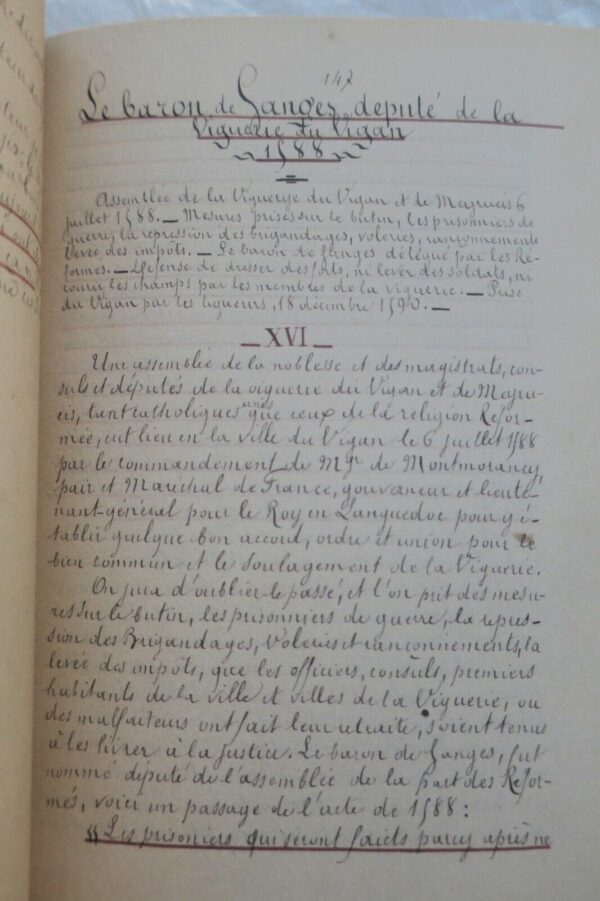 147
Le baron de Ganges, deputé de la
Viguerie du Vigan
1588
Assemblée de la Viguerie du Vigan et de Meyrueis 6
juillet 1588. — Mesures prises sur le butin, les prisonniers de
guerre, la repression des brigandages, voleries, rançonnements
levée des impôts. — Le baron de Ganges délégué par les Ré-
formés. — Défense de dresser des forts, ni lever des soldats, ni
courir les champs par les membres de la viguerie. — Prise
du Vigan par les ligueurs, 18 décembre 1590. —
— XVI —
Une assemblée de la noblesse et des magistrats, con-
suls et députés de la viguerie du Vigan et de Meyru-
eis, tant catholiques unis que ceux de la religion Réfor-
mée, eut lieu en la ville du Vigan le 6 juillet 1588
par le commandement de Mgr de Montmorancy,
pair et Maréchal de France, gouverneur et lieute-
nant-général pour le Roy en Languedoc pour y é-
tablir quelque bon accord, ordre et union pour le
bien commun et le soulagement de la Viguerie.
On jura d'oublier le passé, et l'on prit des mesu-
res sur le butin, les prisonniers de guerre, la repres-
sion des Brigandages, Voleries et rançonnements, la
levée des impôts, que les officiers, consuls, premiers
habitants de la ville et villes de la Viguerie, ou
des malfaiteurs ont fait leur retraite, soient tenus
à les livrer à la justice. Le baron de Ganges, fut
nommé député de l'assemblée de la part des Réfor-
més, voici un passage de l'acte de 1588 :
« Les prisoniers qui seront faicts parcy après ne